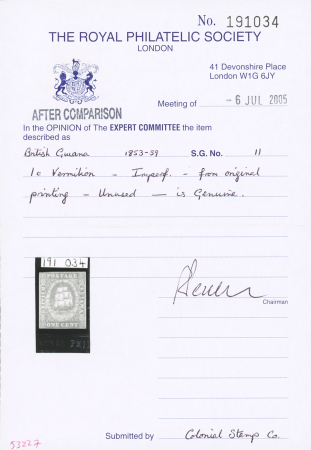 No. 191034
THE ROYAL PHILATELIC SOCIETY
LONDON
41 Devonshire Place
London W1G 6JY
AFTER COMPARISON
Meeting of - 6 JUL 2005
In the OPINION of The EXPERT COMMITTEE the item
described as
British Guiana 1853-59 S.G. No. 11
1c Vermilion - Imperf. - from original
printing - Unused - is Genuine.
191 034
POSTAGE
ONE CENT
Chairman
Submitted by Colonial Stamp Co.
53227